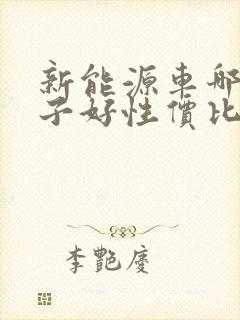 新能源車哪
子好性價比
李艷慶